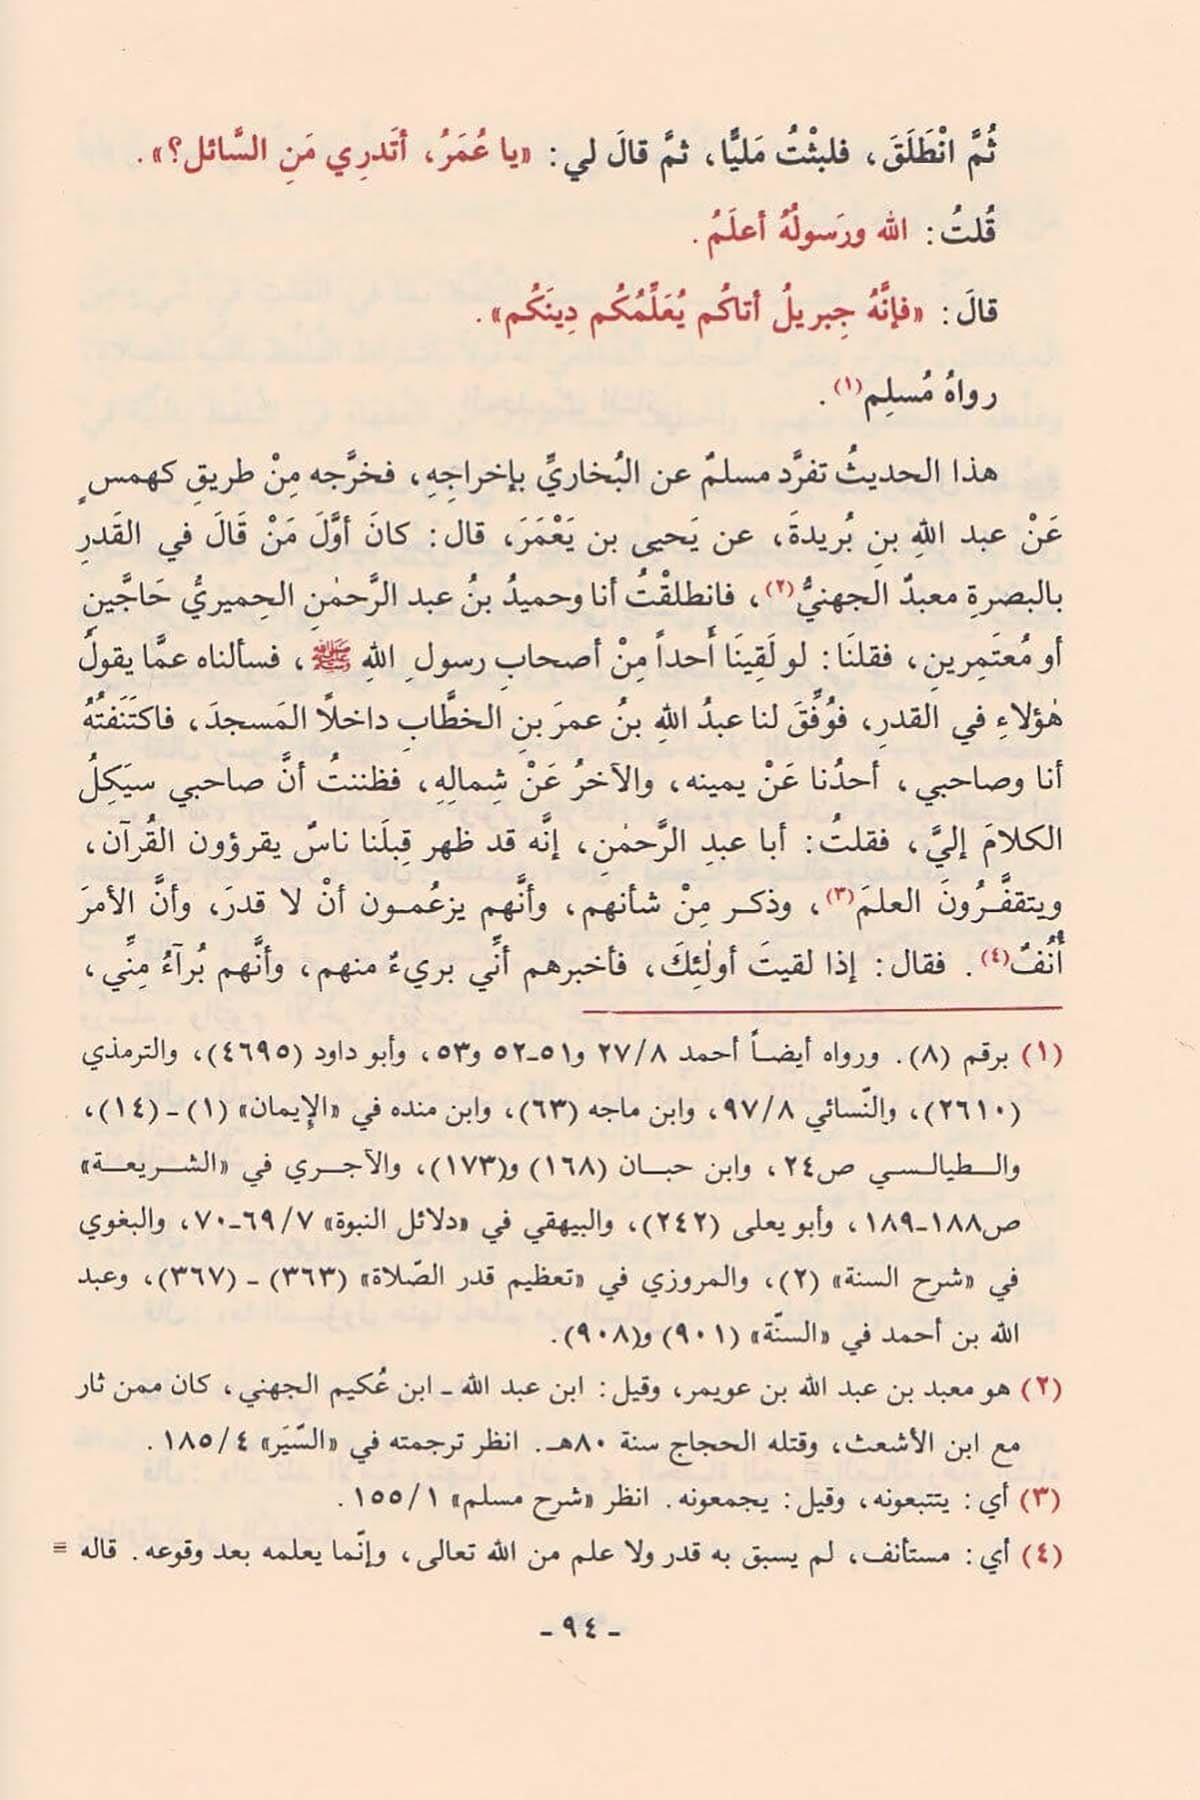 ثُمَّ انْطَلَقَ، فلبثْتُ مَليًّا، ثمَّ قالَ لي: «يا عُمَرُ، أتَدرِي مَنِ السَّائل؟».
قُلتُ: الله ورَسولُهُ أعلَمُ.
قالَ: «فإنَّهُ جِبريلُ أتاكُم يُعَلِّمُكُم دِينَكُم».
رواهُ مُسلِم(١).
هذا الحديثُ تفرَّد مسلمٌ عن البُخاريِّ بإخراجِهِ، فخرَّجه مِنْ طريقِ كهمسٍ
عَنْ عبد اللهِ بنِ بُريدةَ، عن يَحيى بن يَعْمَرَ، قال: كانَ أوَّلَ مَنْ قَالَ في القَدرِ
بالبصرةِ معبدٌ الجهنيُّ(٢)، فانطلقْتُ أنا وحميدُ بنُ عبد الرَّحمٰنِ الحِميريُّ حَاجَّينِ
أو مُعتَمِرينِ، فقلنَا: لو لَقِينَا أَحداً مِنْ أصحابِ رسولِ اللهِ ﷺ، فسألناه عمَّا يقولُ
هٰؤلاءِ في القدرِ، فوُفِّقَ لنا عبدُ اللهِ بنُ عمرَ بنِ الخطَّابِ داخلًا المَسجدَ، فاكتَنَفتُهُ
أنا وصاحبي، أحدُنا عَنْ يمينه، والآخرُ عَنْ شِمالِهِ، فظننتُ أنَّ صاحبي سيَكِلُ
الكلامَ إليَّ، فقلتُ: أبا عبدِ الرَّحمٰنِ، إنَّه قد ظهر قِبلَنا ناسٌ يقرؤون القُرآن،
ويتقفَّرُونَ العلمَ(٣)، وذكر مِنْ شأنهم، وأنَّهم يزعُمون أنْ لا قدرَ، وأنَّ الأمرَ
أُنُفٌ(٤). فقال: إذا لقيتَ أولٰئِكَ، فأخبرهم أنِّي بريءٌ منهم، وأنَّهم بُرآءُ مِنِّي،
(١) برقم (٨). ورواه أيضاً أحمد ٢٧/٨ و٥١-٥٢ و٥٣، وأبو داود (٤٦٩٥)، والترمذي
(٢٦١٠)، والنّسائي ٩٧/٨، وابن ماجه (٦٣)، وابن منده في «الإيمان» (١) - (١٤)،
والطيالسي ص٢٤، وابن حبان (١٦٨) و(١٧٣)، والآجري في «الشريعة»
ص١٨٨-١٨٩، وأبو يعلى (٢٤٢)، والبيهقي في «دلائل النبوة» ٦٩/٧-٧٠، والبغوي
في «شرح السنة» (٢)، والمروزي في «تعظيم قدر الصّلاة» (٣٦٣) - (٣٦٧)، وعبد
الله بن أحمد في «السنّة» (٩٠١) و(٩٠٨).
(٢) هو معبد بن عبد الله بن عويمر، وقيل: ابن عبد الله - ابن عُكيم الجهني، كان ممن ثار
مع ابن الأشعث، وقتله الحجاج سنة ٨٠هـ. انظر ترجمته في «السّيَر» ١٨٥/٤.
(٣) أي: يتتبعونه، وقيل: يجمعونه. انظر «شرح مسلم» ١٥٥/١.
(٤) أي: مستأنف، لم يسبق به قدر ولا علم من الله تعالى، وإنّما يعلمه بعد وقوعه. قاله =
- ٩٤ -